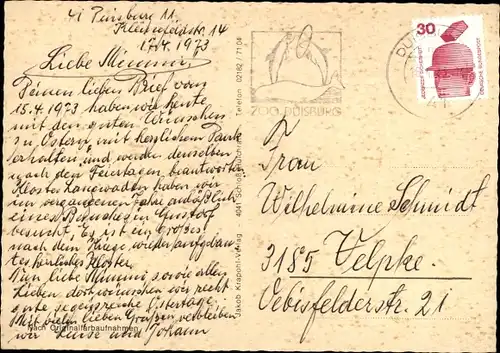 41 Duisburg 11.
Kleinfeldstr. 14
17.4.1973
Liebe Mimmi,
Deinen lieben Brief vom
15.4.1973 haben wir heute
mit den guten Wünschen
zu Ostern mit herzlichem Dank
erhalten und werden denselben
nach den Feiertagen beantworten.
Kloster Langwaden haben wir
im vergangenen Jahre anläßlich
eines Besuches in
besucht. Es ist ein Großes
nach dem Kriege wieder aufgebau-
tes herrliches Kloster.
Nun liebe Mimmi, sowie allen
Lieben dort wünschen wir recht
gute segensreiche Ostertage.
Mit vielen lieben Grüßen verbleiben
wir Luise und Johann
Nach Originalfarbaufnahmen
Jakob Krapohl-Verlag 4041 Telefon 02182 / 71 04
ZOO DUISBURG
30
DEUTSCHE BUNDESPOST
Frau
Wilhelmine Schmidt
3185 Velpke
Oebisfelderstr. 21